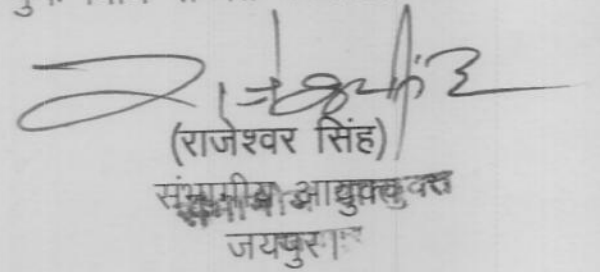 (राजेश्वर सिंह)
संभागीय आयुक्त
जयपुर